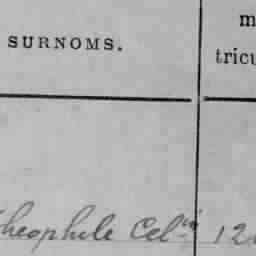 m
SURNOMS.
tricu
Theophile Cel 12